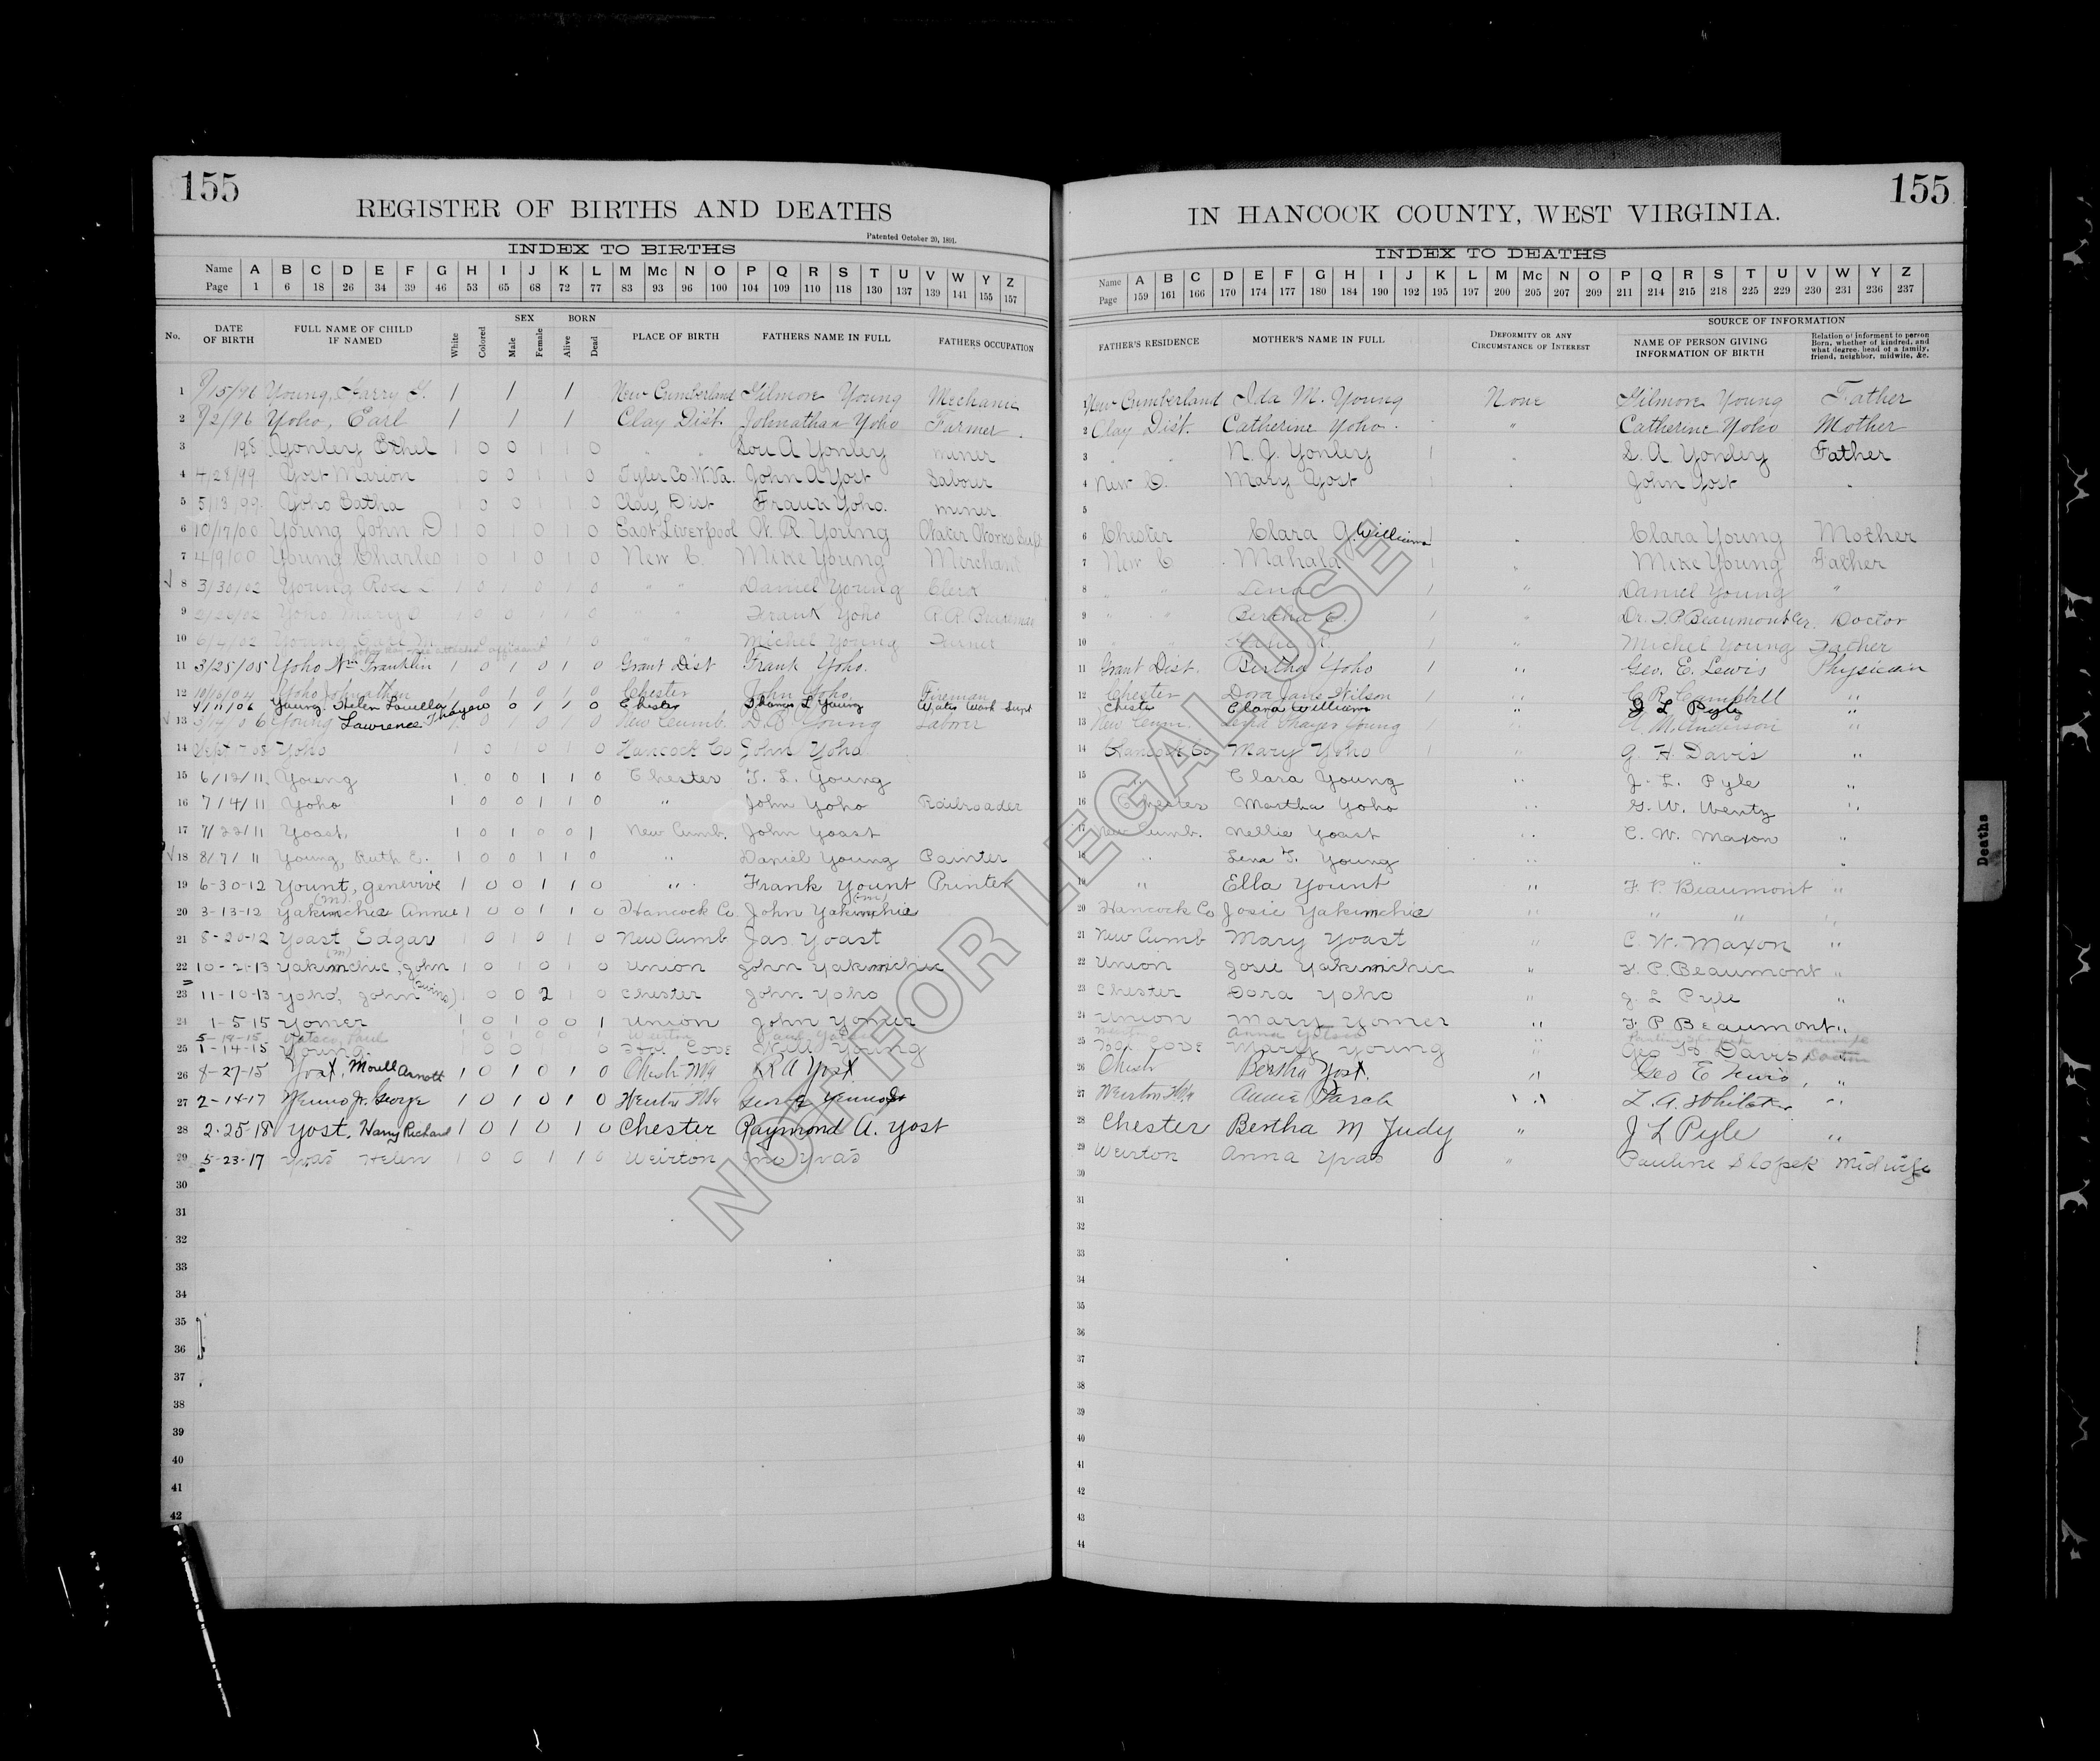 155
REGISTER OF BIRTHS AND DEATHS
Patented October 20, 1891.
INDEX TO BIRTHS
Name A B C D E F G H I J K L M Mc N O P Q R S T U V W Y Z
Page 1 6 18 26 34 39 46 53 65 68 72 77 83 93 96 100 104 109 110 118 130 137 139 141 155 157
No. DATE OF BIRTH FULL NAME OF CHILD IF NAMED White Colored SEX Male Female BORN Alive Dead PLACE OF BIRTH FATHERS NAME IN FULL FATHERS OCCUPATION
1 9/15/96 Young, Harry G. 1 1 1 New Cumberland Gilmore Young Mechanic
2 8/2/96 Yoho, Earl 1 1 1 Clay Dist. Johnathan Yoho Farmer
3 198 Yonley Ethel 1 0 0 1 1 0 " " Lou A Yonley miner
4 4/28/99 Yost Marion 1 0 0 1 1 0 Tyler Co. W. Va. John A Yost Labour
5 5/13/99 Yoho Batha 1 0 0 1 1 0 Clay Dist Frank Yoho. miner
6 10/17/00 Young John D 1 0 1 0 1 0 East Liverpool W. R Young Water Works Supt
7 4/9/00 Young Charles 1 0 1 0 1 0 New C. Mike Young Merchant
8 3/30/02 Young 1 0 0 " " Daniel Young Clerk
9 2/26/02 Yoho Mary 1 0 0 1 1 0 " " Frank Yoho R.R. Brakeman
10 6/4/02 Young Earl M 0 0 0 " " Michel Young
11 3/25/05 Yoho Wm Franklin 1 0 1 0 1 0 Grant Dist Frank Yoho.
12 10/10/04 Yoho Johnathan 1 0 1 0 1 0 Chester John Yoho. Fireman
4/11/06 Young. Helen Louella 1 0 0 1 1 0 Chester Thomas L Young Water Work Supt
13 3/14/06 Young Lawrence Thayer 0 0 0 New Cumb. D. C. Young Laborer
14 Sept - 05 Yoho 1 0 1 0 1 0 Hancock Co John Yoho
15 6/12/11 Young 1 0 0 1 1 0 Chester T. L. Young
16 7/4/11 Yoho 1 0 0 1 1 0 " John Yoho Railroader
17 7/22/11 Yoast, 1 0 1 0 0 1 New Cumb. John Yoast
18 8/7/11 Young, Ruth E. 1 0 0 1 1 0 " Daniel Young Painter
19 6-30-12 Yount, genevive 1 0 0 1 1 0 " Frank Yount Printer
20 3-13-12 Yakimchic (m) Annie 1 0 0 1 1 0 Hancock Co. John Yakimchic (m)
21 8-20-12 Yoast Edgar 1 0 1 0 1 0 New Cumb Jas Yoast
22 10-2-13 Yakimchic (m), John 1 0 1 0 1 0 Union John Yakimchic
23 11-10-13 Yoho, John (twins) 1 0 0 2 1 0 Chester John Yoho
24 1-5-15 Yomer 1 0 1 0 0 1 Union John Yomer
5-18-15 Yatsco, Paul 0 1 0 0 1 Weirton Paul
25 1-14-15 Young. 1 0 0 0 Hol. Cove Will Young
26 8-27-15 Yost, Morell Arnott 1 0 1 0 1 0 R A Yost
27 2-14-17 Yenno Jr. George 1 0 1 0 1 0 Weirton W Va George Yenno Jr
28 2-25-18 Yost, Harry Richard 1 0 1 0 1 0 Chester Raymond A. Yost
29 5-23-17 Yvas Helen 1 0 0 1 1 0 Weirton Yvas
30
31
32
33
34
35
36
37
38
39
40
41
42
155
IN HANCOCK COUNTY, WEST VIRGINIA.
INDEX TO DEATHS
Name A B C D E F G H I J K L M Mc N O P Q R S T U V W Y Z
Page 159 161 166 170 174 177 180 184 190 192 195 197 200 205 207 209 211 214 215 218 225 229 230 231 236 237
FATHER'S RESIDENCE MOTHER'S NAME IN FULL DEFORMITY OR ANY CIRCUMSTANCE OF INTEREST SOURCE OF INFORMATION NAME OF PERSON GIVING INFORMATION OF BIRTH Relation of informent to person Born, whether of kindred, and what degree, head of a family, friend, neighbor, midwife, &c.
1 New Cumberland Ida M. Young None Gilmore Young Father
2 Clay Dist. Catherine Yoho. " Catherine Yoho Mother
3 " " N. J. Yonley 1 " L. A. Yonley Father
4 New C. Mary Yost 1 " John Yost "
5
6 Chester Clara J. Williams 1 " Clara Young Mother
7 New C Mahala 1 " Mike Young Father
8 " " Lena 1 " Daniel Young "
9 " " Bertha C. 1 " Dr. F. P. Beaumont Doctor
10 " " 1 " Michel Young Father
11 Grant Dist. Bertha Yoho 1 " Geo. E. Lewis Physician
12 Chester Dora Jane Wilson 1 " C R Campbell "
Chester Clara Williams " J L Pyle "
13 New Cum. Lena Thayer Young " Anderson "
14 Hancock Co Mary Yoho 1 " G. H. Davis "
15 " Clara Young " J. L. Pyle "
16 Chester Martha Yoho " G. W. Wentz "
17 New Cumb. Nellie Yoast " C. W. Maxon "
18 " Lena T. Young " " "
19 " Ella Yount " F. P. Beaumont "
20 Hancock Co Josie Yakimchic " " " "
21 New Cumb Mary Yoast " C. W. Maxon "
22 Union Josie Yakimchic " F. P. Beaumont "
23 Chester Dora Yoho " J. L Pyle "
24 Union Mary Yomer " F. P Beaumont "
Anna midwife
25 Hol Cove Mary Young " Geo H Davis Doctor
26 Bertha Yost. " Geo E Lewis, "
27 Weirton W Va Annie Pasch " L. A. "
28 Chester Bertha M Judy " J L Pyle "
29 Weirton Anna Yvas " Pauline Slopek Midwife
30
31
32
33
34
35
36
37
38
39
40
41
42
43
44
Deaths
NOT FOR LEGAL USE